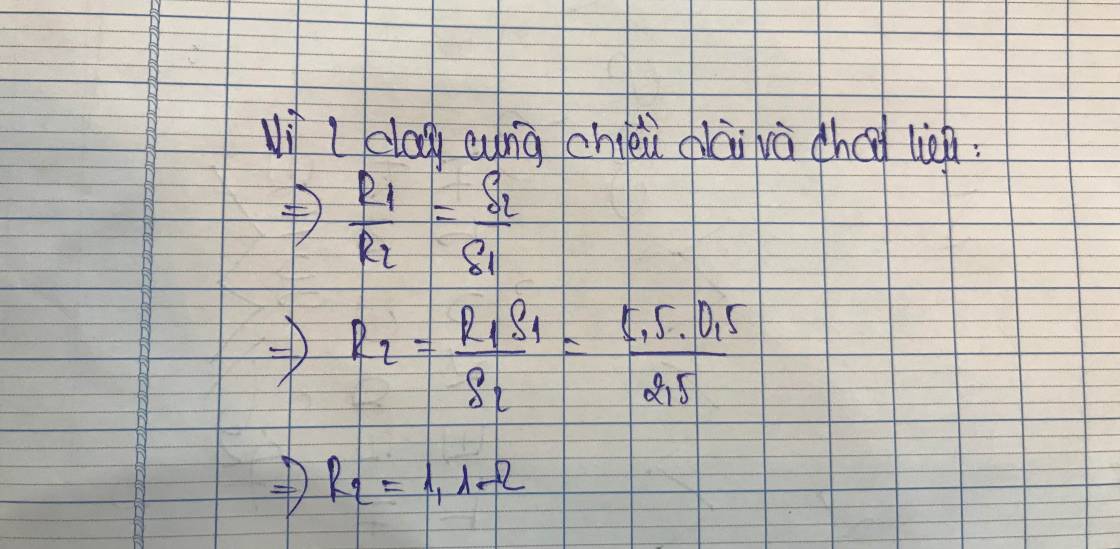 Vì 2 dây cùng chiều dài và chất liệu:
=> R1/R2 = S2/S1
=> R2 = R1 S1/S2 = 5,5.0,5/2,5
=> R2 = 1,1Ω